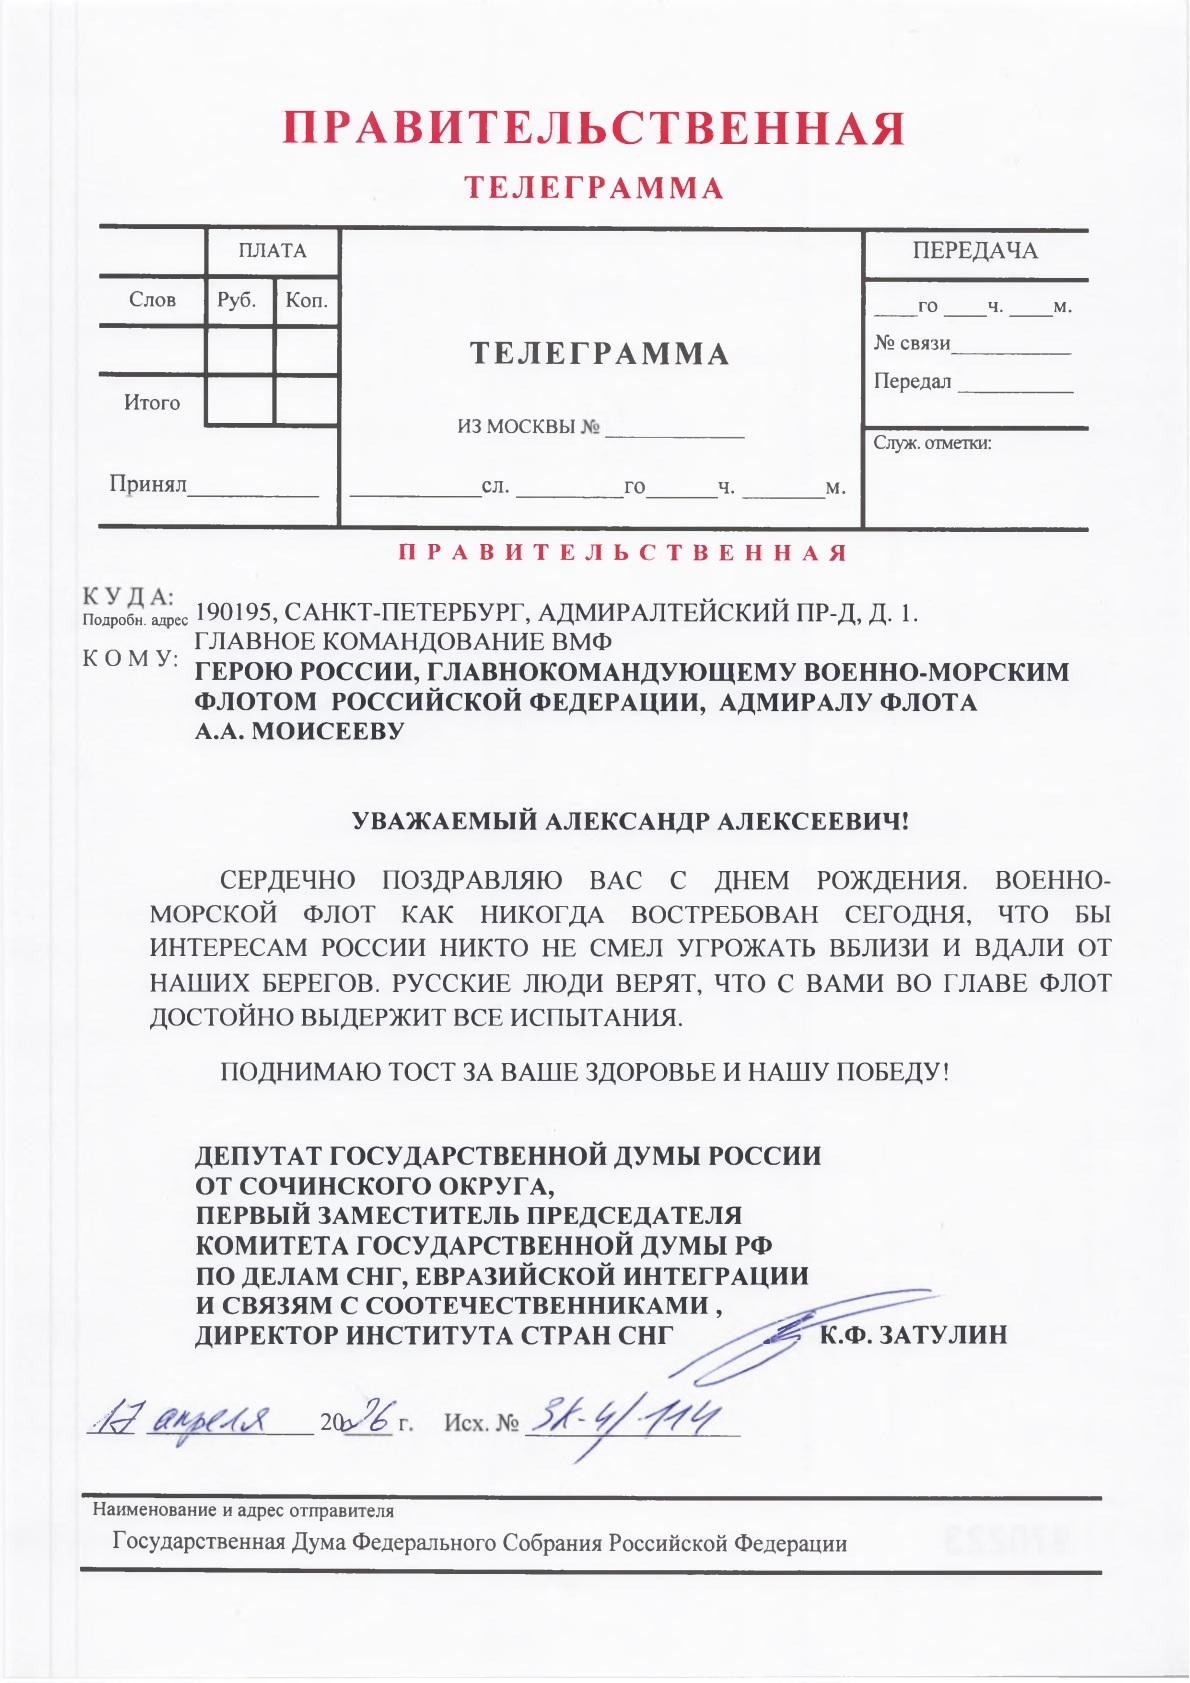 ПРАВИТЕЛЬСТВЕННАЯ
ТЕЛЕГРАММА
ПЛАТА
Слов Руб. Коп.
Итого
Принял____________
ТЕЛЕГРАММА
ИЗ МОСКВЫ № _____________
____________сл. __________го_______ч. ________м.
ПЕРЕДАЧА
____го ____ч. ____м.
№ связи____________
Передал ____________
Служ. отметки:
ПРАВИТЕЛЬСТВЕННАЯ
КУДА:
Подробн. адрес
190195, САНКТ-ПЕТЕРБУРГ, АДМИРАЛТЕЙСКИЙ ПР-Д, Д. 1.
ГЛАВНОЕ КОМАНДОВАНИЕ ВМФ
КОМУ:
ГЕРОЮ РОССИИ, ГЛАВНОКОМАНДУЮЩЕМУ ВОЕННО-МОРСКИМ
ФЛОТОМ РОССИЙСКОЙ ФЕДЕРАЦИИ, АДМИРАЛУ ФЛОТА
А.А. МОИСЕЕВУ
УВАЖАЕМЫЙ АЛЕКСАНДР АЛЕКСЕЕВИЧ!
СЕРДЕЧНО ПОЗДРАВЛЯЮ ВАС С ДНЕМ РОЖДЕНИЯ. ВОЕННО-
МОРСКОЙ ФЛОТ КАК НИКОГДА ВОСТРЕБОВАН СЕГОДНЯ, ЧТО БЫ
ИНТЕРЕСАМ РОССИИ НИКТО НЕ СМЕЛ УГРОЖАТЬ ВБЛИЗИ И ВДАЛИ ОТ
НАШИХ БЕРЕГОВ. РУССКИЕ ЛЮДИ ВЕРЯТ, ЧТО С ВАМИ ВО ГЛАВЕ ФЛОТ
ДОСТОЙНО ВЫДЕРЖИТ ВСЕ ИСПЫТАНИЯ.
ПОДНИМАЮ ТОСТ ЗА ВАШЕ ЗДОРОВЬЕ И НАШУ ПОБЕДУ!
ДЕПУТАТ ГОСУДАРСТВЕННОЙ ДУМЫ РОССИИ
ОТ СОЧИНСКОГО ОКРУГА,
ПЕРВЫЙ ЗАМЕСТИТЕЛЬ ПРЕДСЕДАТЕЛЯ
КОМИТЕТА ГОСУДАРСТВЕННОЙ ДУМЫ РФ
ПО ДЕЛАМ СНГ, ЕВРАЗИЙСКОЙ ИНТЕГРАЦИИ
И СВЯЗЯМ С СООТЕЧЕСТВЕННИКАМИ ,
ДИРЕКТОР ИНСТИТУТА СТРАН СНГ К.Ф. ЗАТУЛИН
17 апреля 2026 г. Исх. № ЗК-4/114
Наименование и адрес отправителя
Государственная Дума Федерального Собрания Российской Федерации